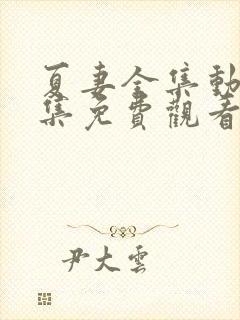 夏妻全集動
集免費觀看
尹大雲